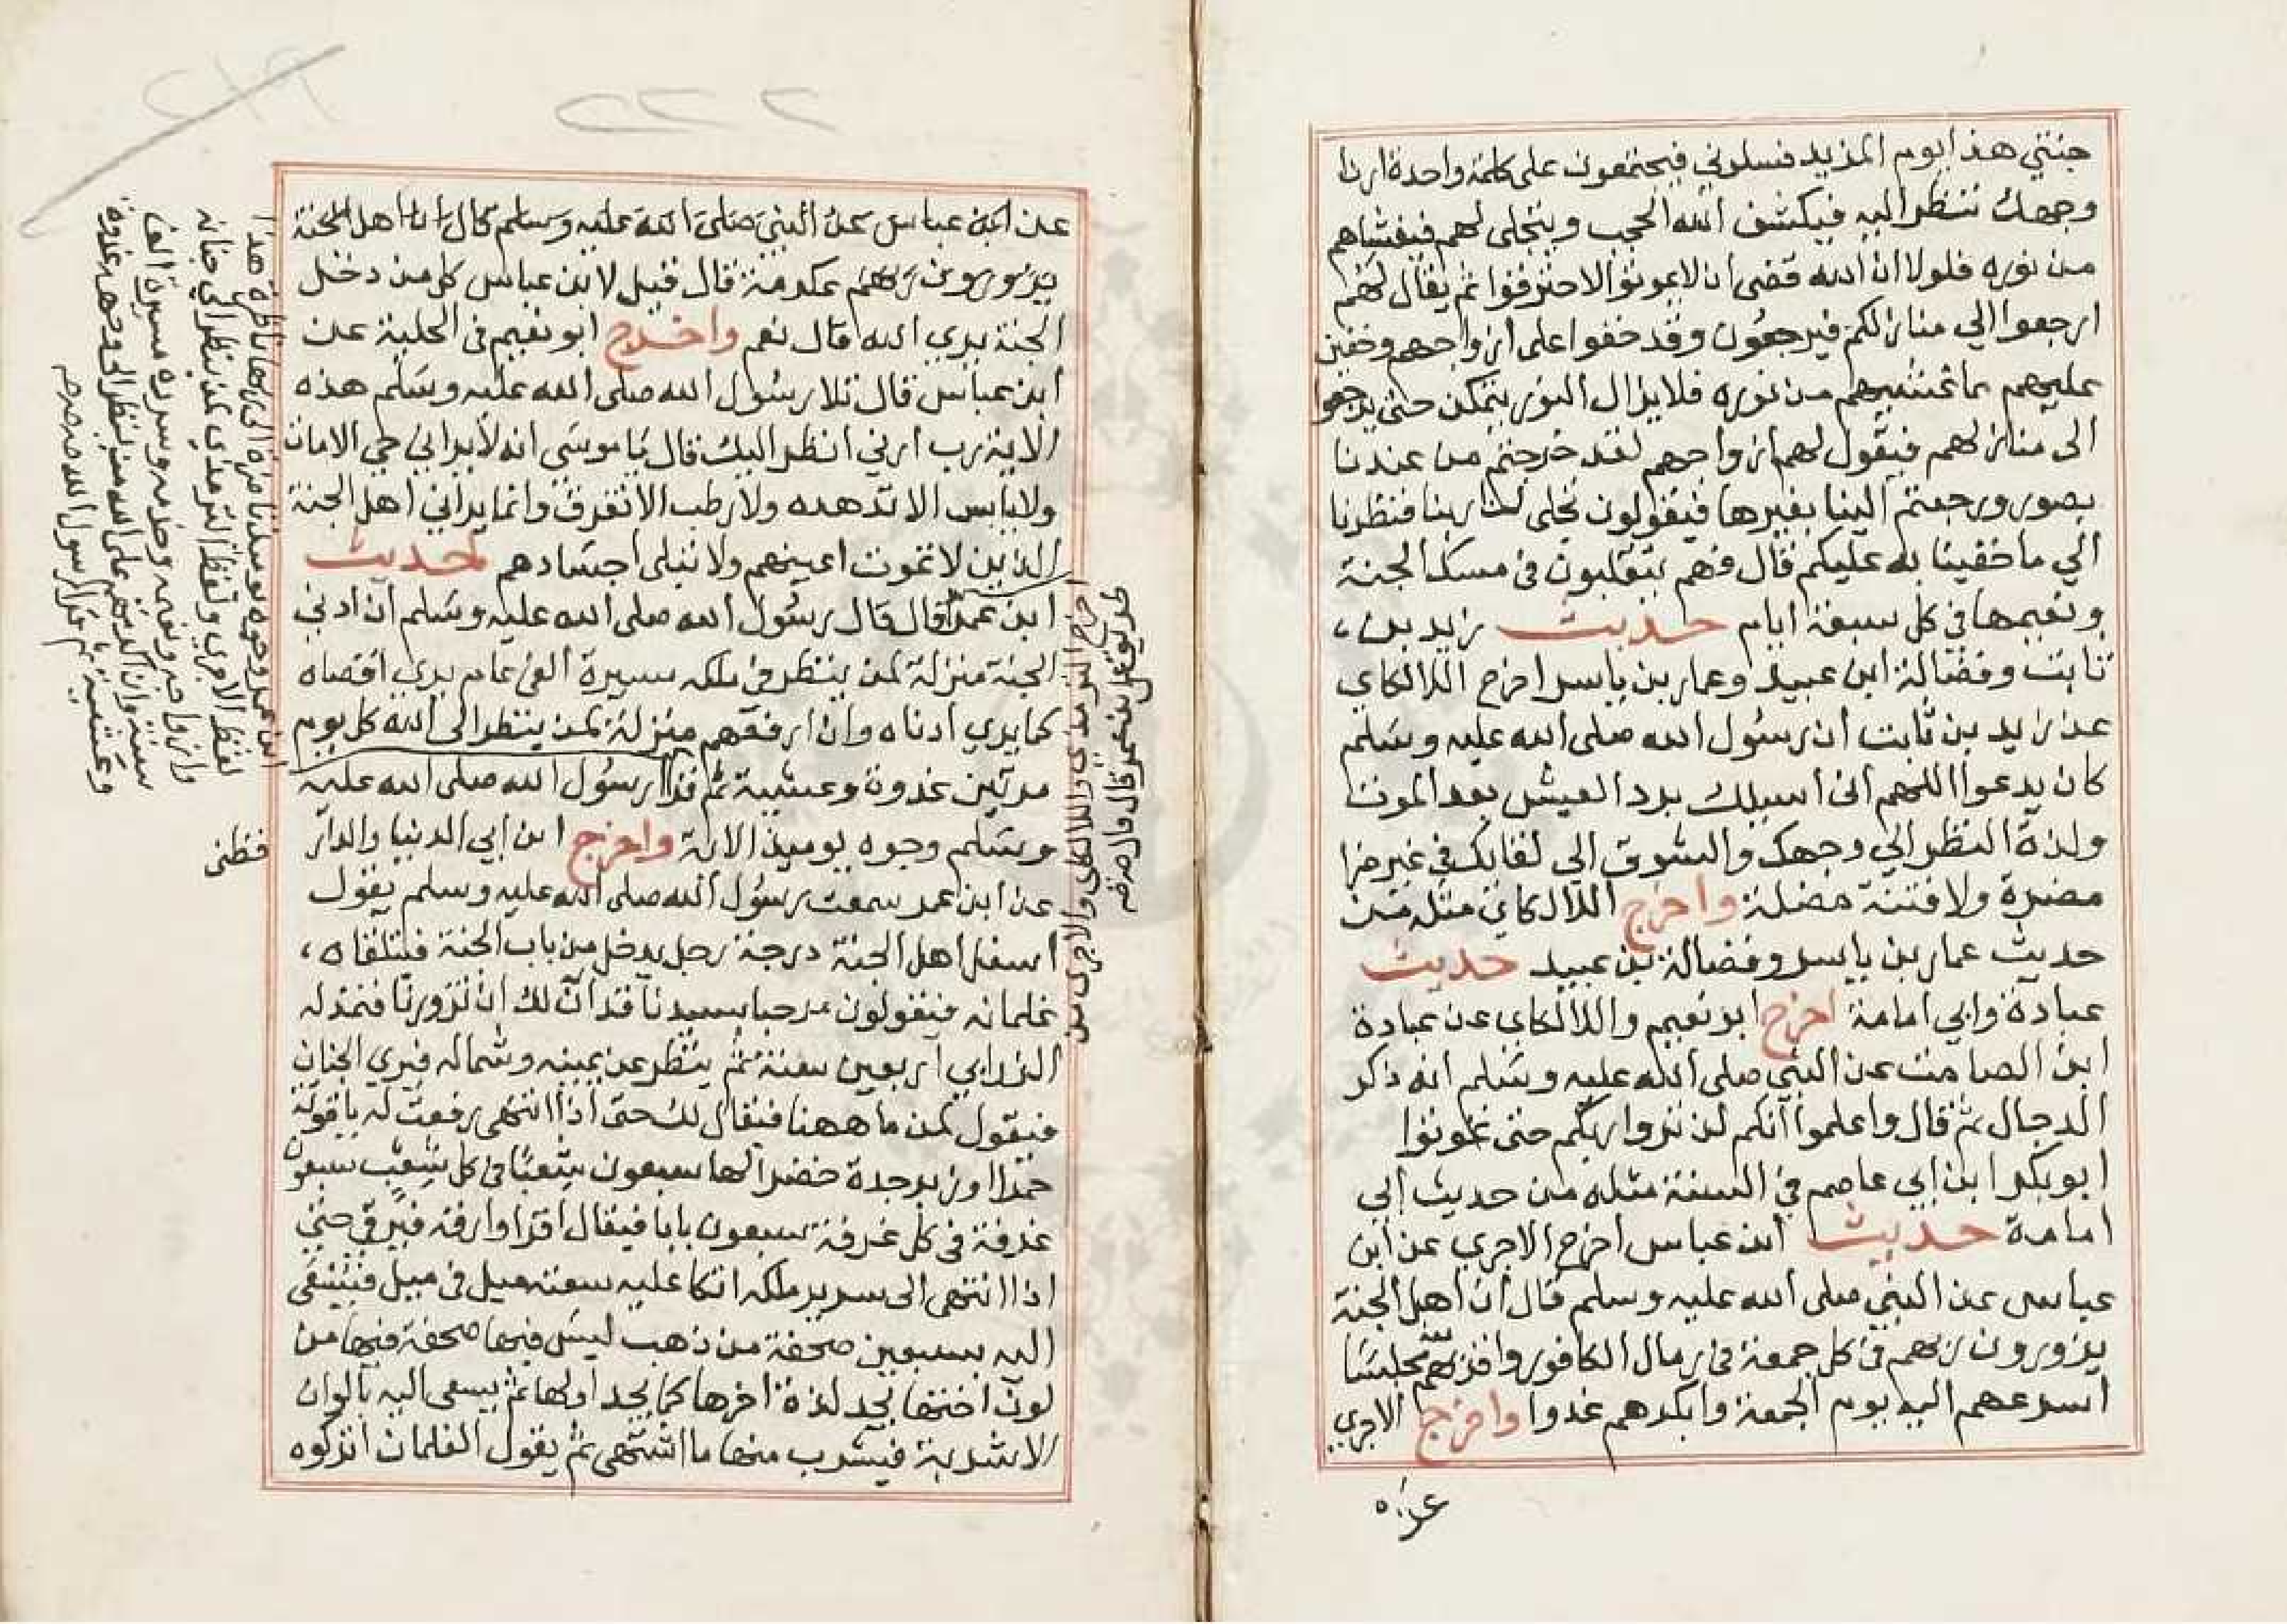 جنتي هذا يوم المزيد فسلوني فيجتمعون على كلمة واحدة ارنا
وجهك ننظر اليه فيكشف الله الحجب ويتجلى لهم فيغشاهم
من نوره فلولا ان الله قضى ان لا يموتوا لاحترقوا ثم يقال لهم
ارجعوا الي منازلكم فيرجعون وقد خفوا على ازواجهم وخفين
عليهم بما غشيهم من نوره فلا يزال النور يتمكن حتى يرجعوا
الى منازلهم فيقول لهم ازواجهم لقد خرجتم من عندنا
بصور ورجعتم الينا بغيرها فيقولون تجلى لنا ربنا فنظرنا
الي ما خفينا به عليكم قال فهم يتقلبون في مسك الجنة
ونعيمها في كل سبعة ايام حديث زيد بن
ثابت وفضالة ابن عبيد وعمار بن ياسر اخرج اللالكاي
عن زيد بن ثابت ان رسول الله صلى الله عليه وسلم
كان يدعوا اللهم اني اسيلك برد العيش بعد الموت
ولذة النظر الي وجهك والشوق الي لقائك في غير ضرا
مضرة ولا فتنة مضلة واخرج اللالكاي مثله من
حديث عمار بن ياسر وفضالة بن عبيد حديث
عبادة وابي امامة اخرج ابو نعيم واللالكاي عن عبادة
ابن الصامت عن النبي صلى الله عليه وسلم انه ذكر
الدجال ثم قال واعلموا انكم لن تروا ربكم حتى تموتوا
ابو بكر ابن ابي عاصم في السنة مثله من حديث ابي
امامة حديث ابن عباس اخرج الاجري عن ابن
عباس عن النبي صلى الله عليه وسلم قال ان اهل الجنة
يزورون ربهم في كل جمعة في رمال الكافور واقربهم مجلسا
اسرعهم اليه يوم الجمعة وابكرهم غدوا واخرج الاجري
عن ابن عباس عن النبي صلى الله عليه وسلم قال ان اهل الجنة
يزورون ربهم عكرمة قال قيل لابن عباس كل من دخل
الجنة يري الله قال نعم واخرج ابو نعيم في الحلية عن
ابن عباس قال تلا رسول الله صلى الله عليه وسلم هذه
الاية رب ارني انظر اليك قال يا موسى انه لا يراني حي الا مات
ولا يابس الا تدهده ولا رطب الا تفرق وانما يراني اهل الجنة
الذين لا تموت اعينهم ولا تبلى اجسادهم حديث
ابن عمر قال قال رسول الله صلى الله عليه وسلم ان ادنى
الجنة منزلة لمن ينظر في ملكه مسيرة الفى عام يرى اقصاه
كما يري ادناه وان ارفعهم منزلة لمن ينظر الى الله كل يوم
مرتين غدوة وعشية ثم قرا رسول الله صلى الله عليه
وسلم وجوه يوميذ الاية واخرج ابن ابي الدنيا والدار
قطنى
عن ابن عمر سمعت رسول الله صلى الله عليه وسلم يقول
اسفل اهل الجنة درجة رجل يدخل من باب الجنة فتتلقاه
غلمانه فيقولون مرحبا بسيدنا قد آن لك ان تزورنا فتمد له
الزرابي اربعين سنة ثم ينظر عن يمينه وشماله فيري الجنان
فيقول لمن ما ههنا فيقال لك حتى اذا انتهى رفعت له ياقوتة
حمرا او زبرجدة خضرا لها سبعون شعبا في كل شعب سبعون
غرفة في كل غرفة سبعون بابا فيقال اقرا وارقه فيرقى حتى
اذا انتهى الى سرير ملكه اتكا عليه سعته ميل في ميل
اليه بسبعين صحفة من ذهب ليس فيها صحفة فيها من
لون اختها يجد لذة اخرها كما يجد اولها ثم يسعى اليه بالوان
الاشربة فيشرب منها ما اشتهى ثم يقول الغلمان اتركوه
اخرج الترمذي واللالكاي والاجري من
لفظ الاجري ولفظ الترمذي لمن ينظر الي جنانه
وازواجه ونعيمه وخدمه وسرره مسيرة الف
سنة وان اكرمهم على الله من ينظر الى وجهه غدوة
وعشية ثم قرا رسول الله صلعم